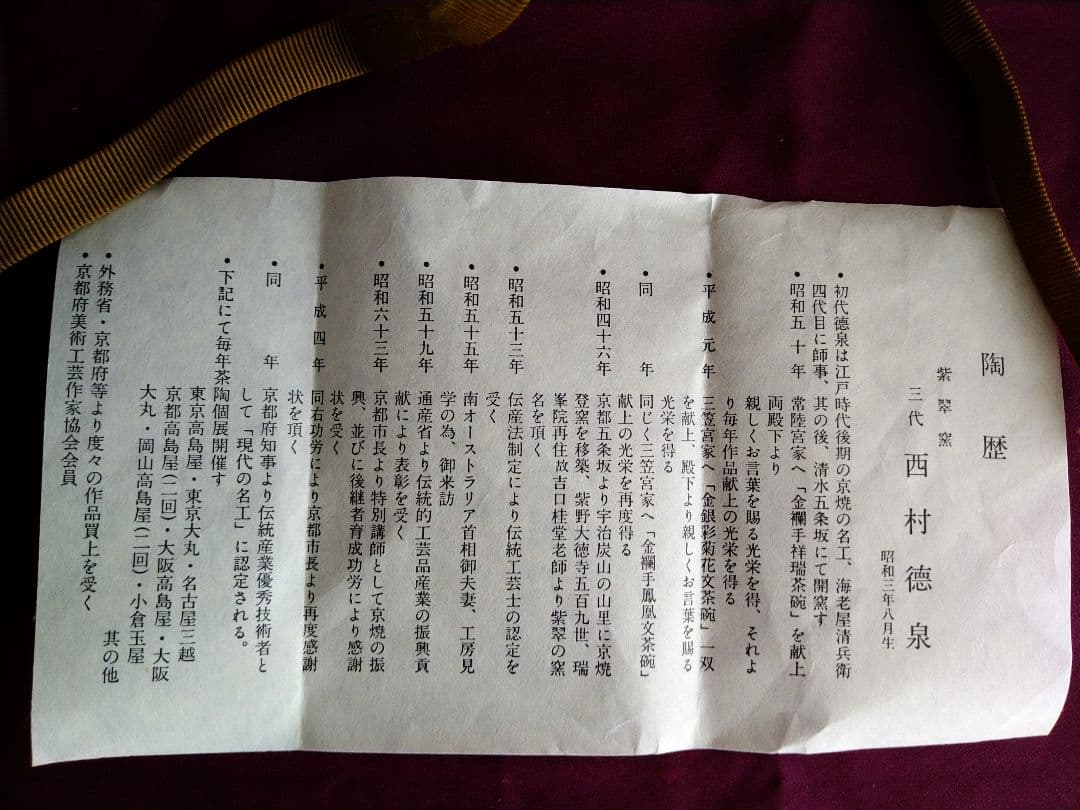 陶歴
紫翠窯
三代 西村徳泉
昭和三年八月生
・初代徳泉は江戸時代後期の京焼の名工、海老屋清兵衛
四代目に師事、其の後、清水五条坂にて開窯す
・昭和五十年 常陸宮家へ「金襴手祥瑞茶碗」を献上
両殿下より
親しくお言葉を賜る光栄を得、それよ
り毎年作品献上の光栄を得る
・平成元年 三笠宮家へ「金銀彩菊花文茶碗」一双
を献上、殿下より親しくお言葉を賜る
光栄を得る
・同年 同じく三笠宮家へ「金襴手鳳凰文茶碗」
献上の光栄を再度得る
・昭和四十六年 京都五条坂より宇治炭山の山里に京焼
登窯を移築、紫野大徳寺五百九世、瑞
峯院再住故吉口桂堂老師より紫翠の窯
名を頂く
・昭和五十三年 伝産法制定により伝統工芸士の認定を
受く
・昭和五十五年 南オーストラリア首相御夫妻、工房見
学の為、御来訪
・昭和五十九年 通産省より伝統的工芸品産業の振興貢
献により表彰を受く
・昭和六十三年 京都市長より特別講師として京焼の振
興、並びに後継者育成功労により感謝
状を受く
・平成四年 同右功労により京都市長より再度感謝
状を頂く
・同年 京都府知事より伝統産業優秀技術者と
して「現代の名工」に認定される。
・下記にて毎年茶陶個展開催す
東京高島屋・東京大丸・名古屋三越
京都高島屋(二回)・大阪高島屋・大阪
大丸・岡山高島屋(二回)・小倉玉屋
其の他
・外務省・京都府等より度々の作品買上を受く
・京都府美術工芸作家協会会員